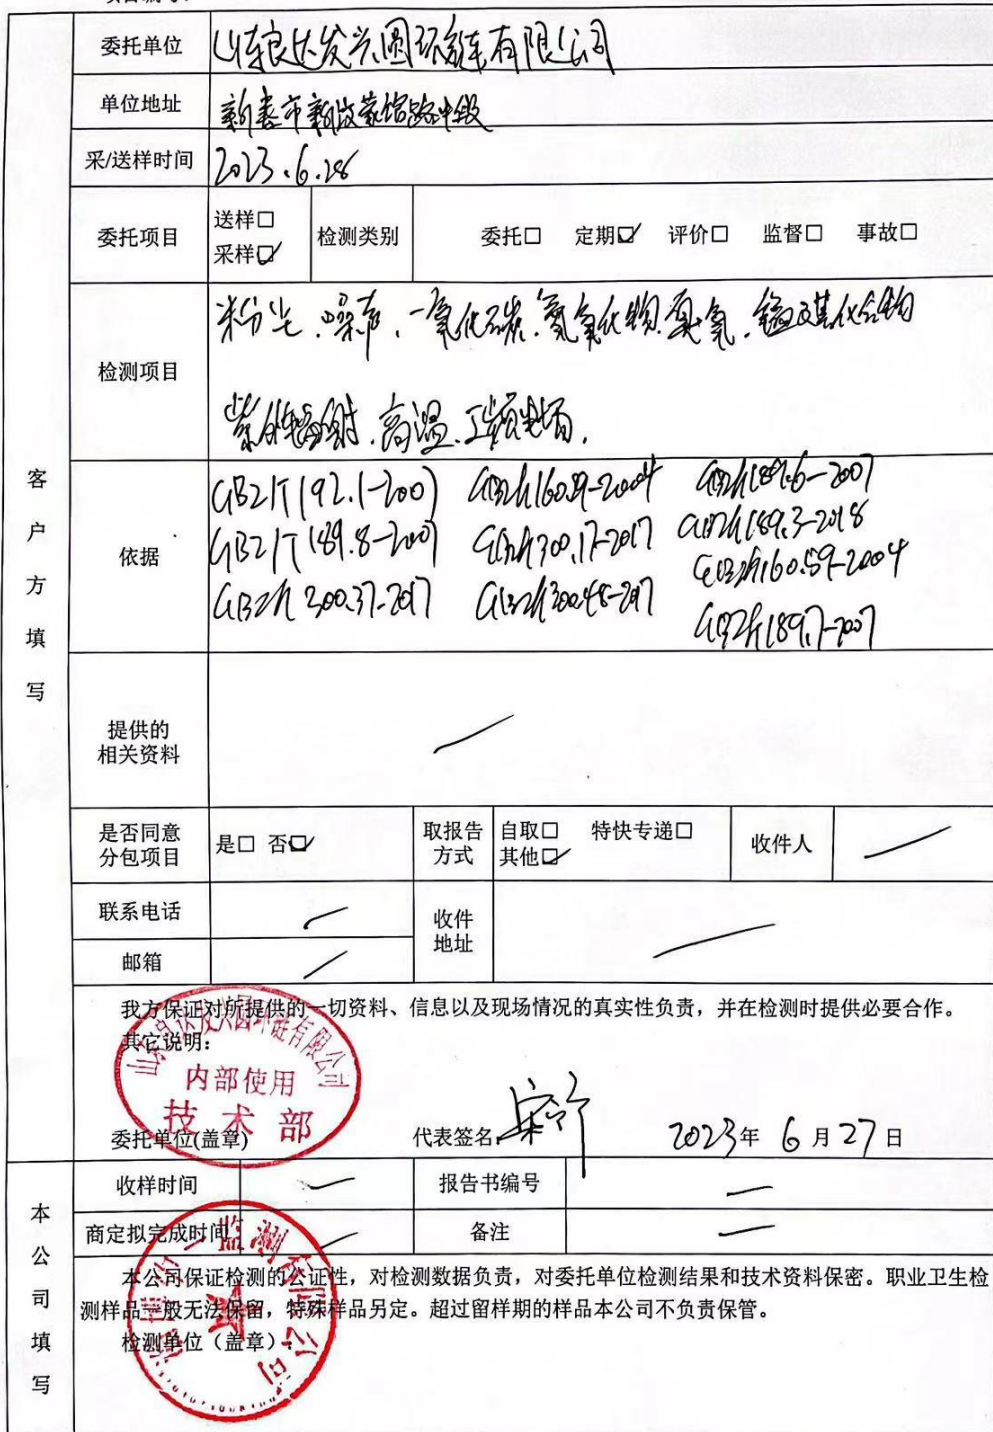 委托单位 山东良达发兴圆环链有限公司
单位地址 新泰市新汶蒙馆路中段
采/送样时间 2023.6.28
委托项目 送样□ 采样☑ 检测类别 委托□ 定期☑ 评价□ 监督□ 事故□
检测项目 粉尘、噪声、一氧化碳、氮氧化物、臭氧、锰及其化合物
紫外辐射、高温、工频电场、
客户方填写
依据 GBZ/T192.1-2007 GBZ/T189.6-2007
GBZ/T189.8-2007 GBZ/T300.17-2017 GBZ/T189.3-2018
GBZ/T300.37-2017 GBZ/T300.48-2017 GBZ/T160.59-2004
GBZ/T189.7-2007
提供的
相关资料
是否同意 分包项目 是□ 否☑ 取报告 方式 自取□ 特快专递□ 其他☑ 收件人
联系电话 收件 地址
邮箱
我方保证对所提供的一切资料、信息以及现场情况的真实性负责，并在检测时提供必要合作。
其它说明：
山东良达发兴圆环链有限公司
内部使用
技术部
委托单位(盖章) 代表签名: 2023年 6月27日
本公司填写
收样时间 报告书编号
商定拟完成时间 备注
本公司保证检测的公证性，对检测数据负责，对委托单位检测结果和技术资料保密。职业卫生检
测样品一般无法保留，特殊样品另定。超过留样期的样品本公司不负责保管。
检测单位（盖章）：
监测有限公司